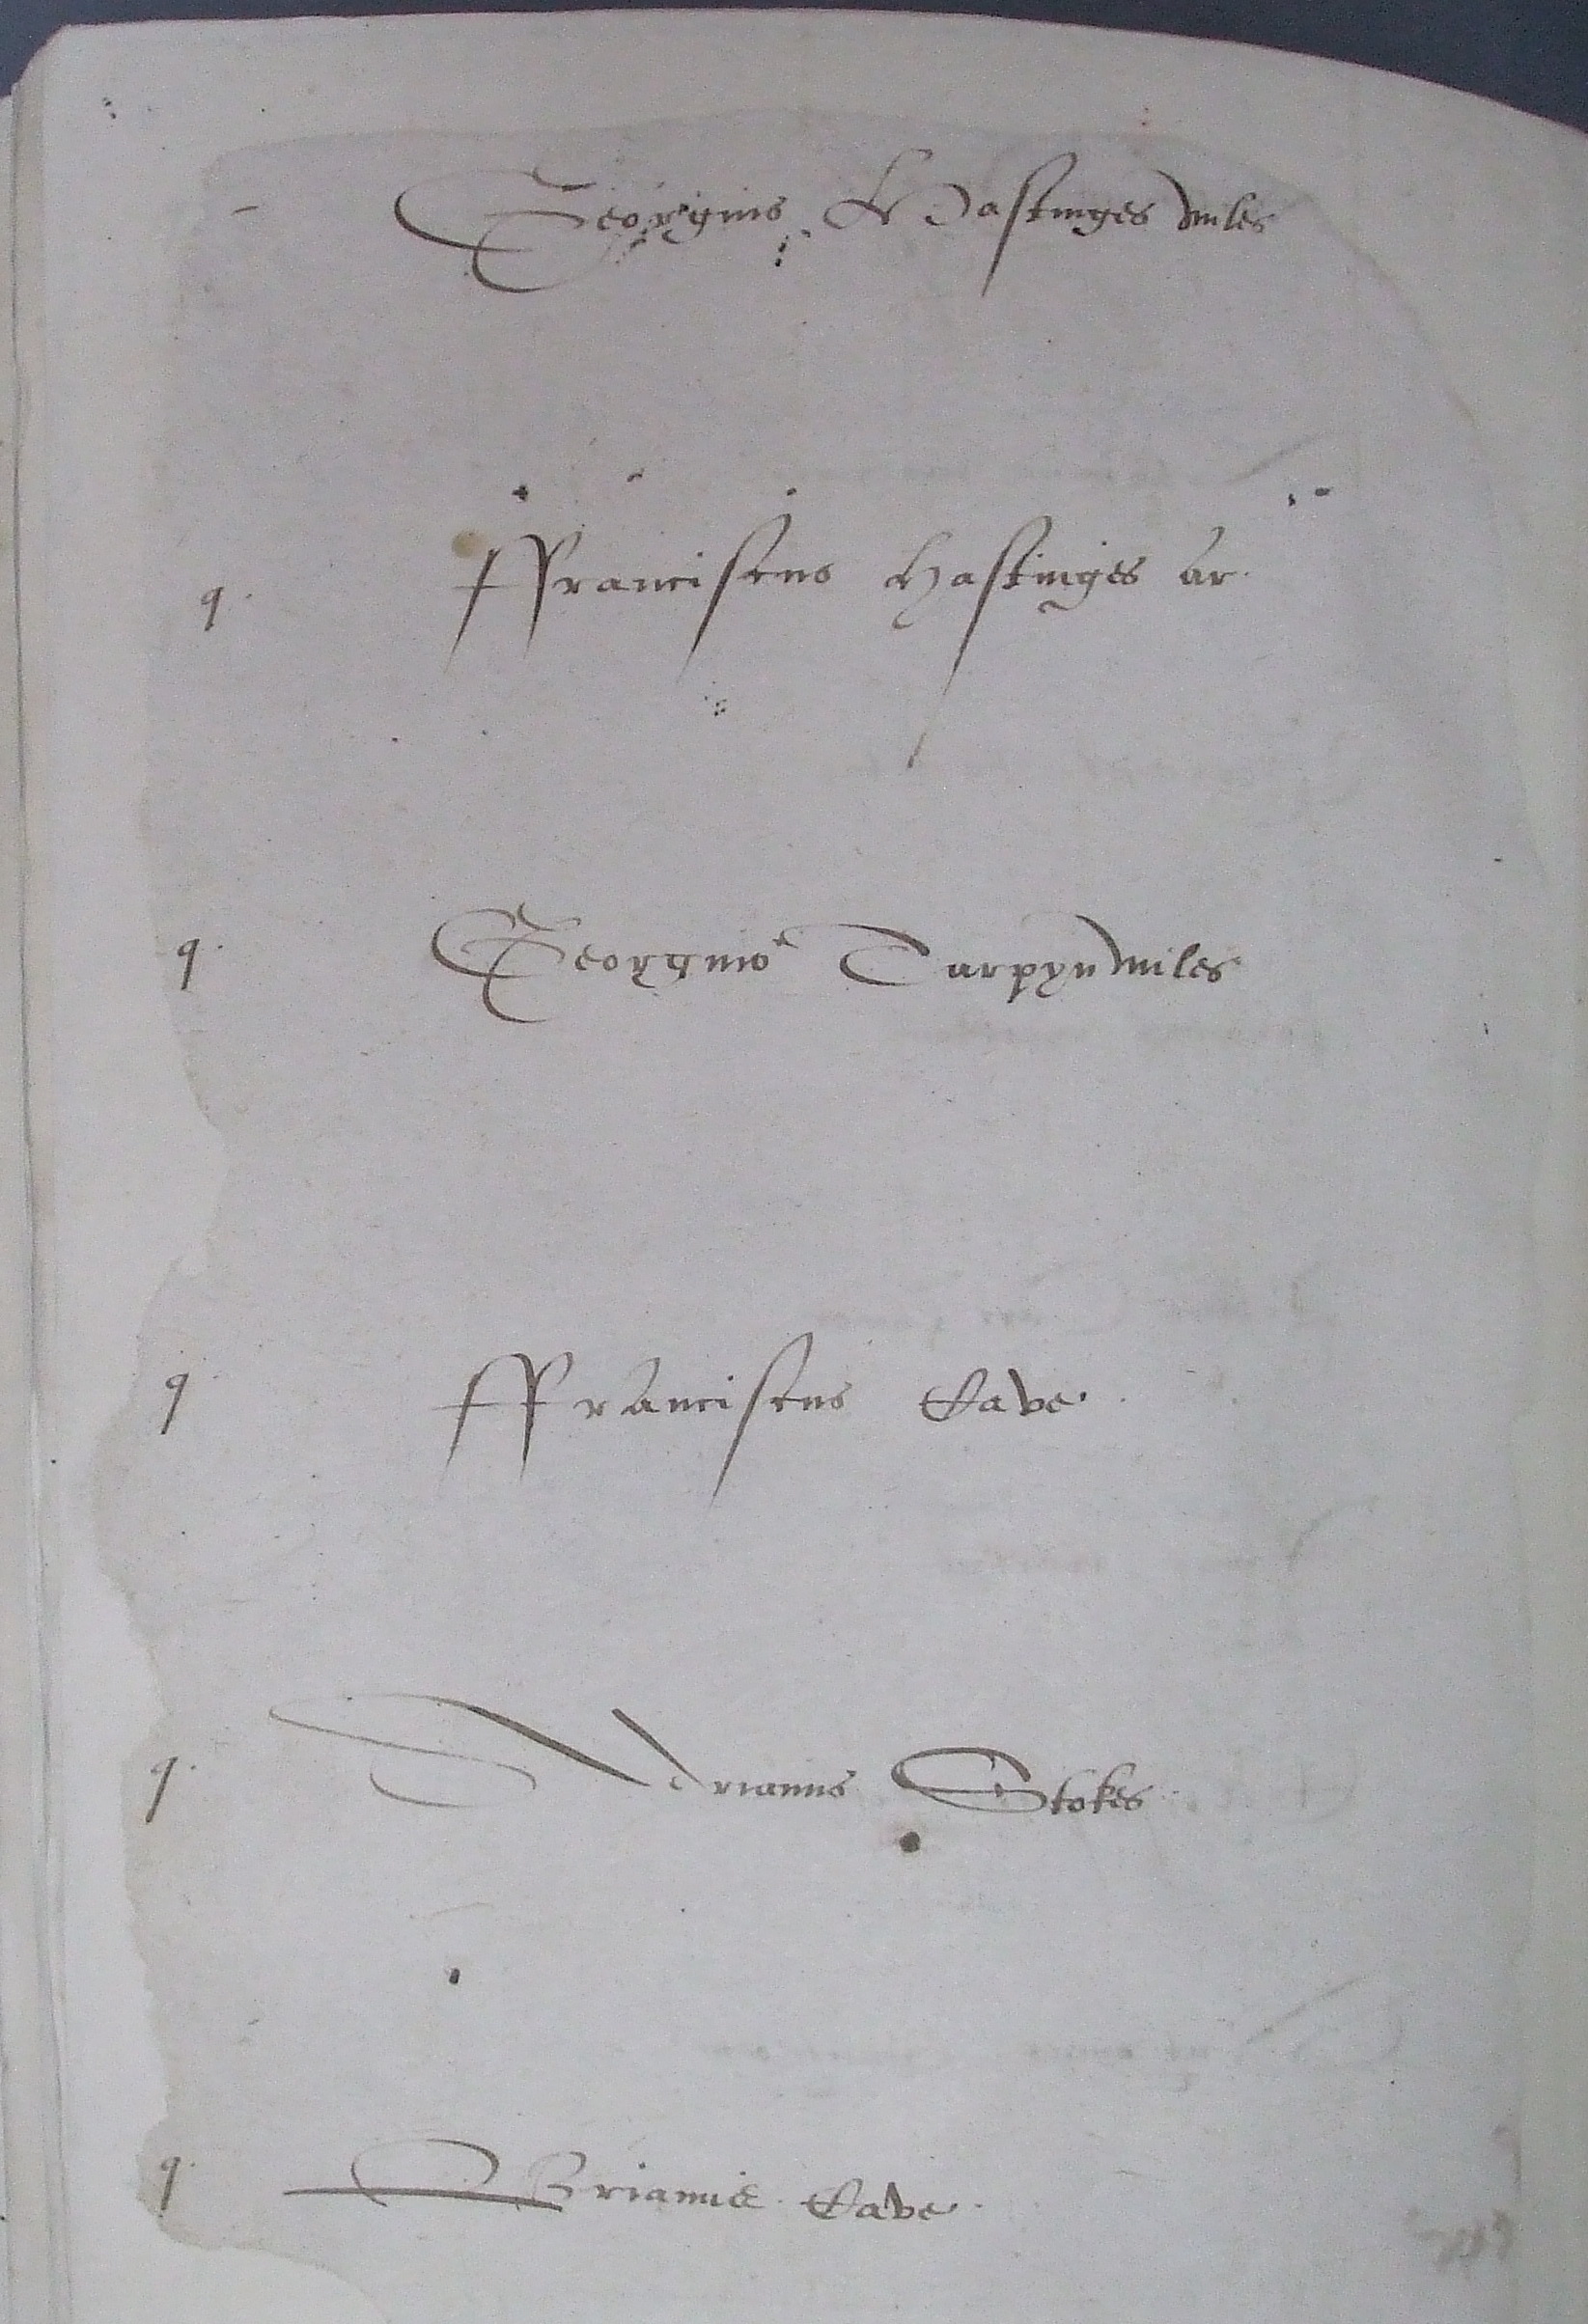 Georgius Hastinges miles
q. ffranciscus Hastinges ar.
q. Georgius Turpyn miles
q ffranciscus Cave.
q. Adrianus Stokes.
q. Brianus Cave.